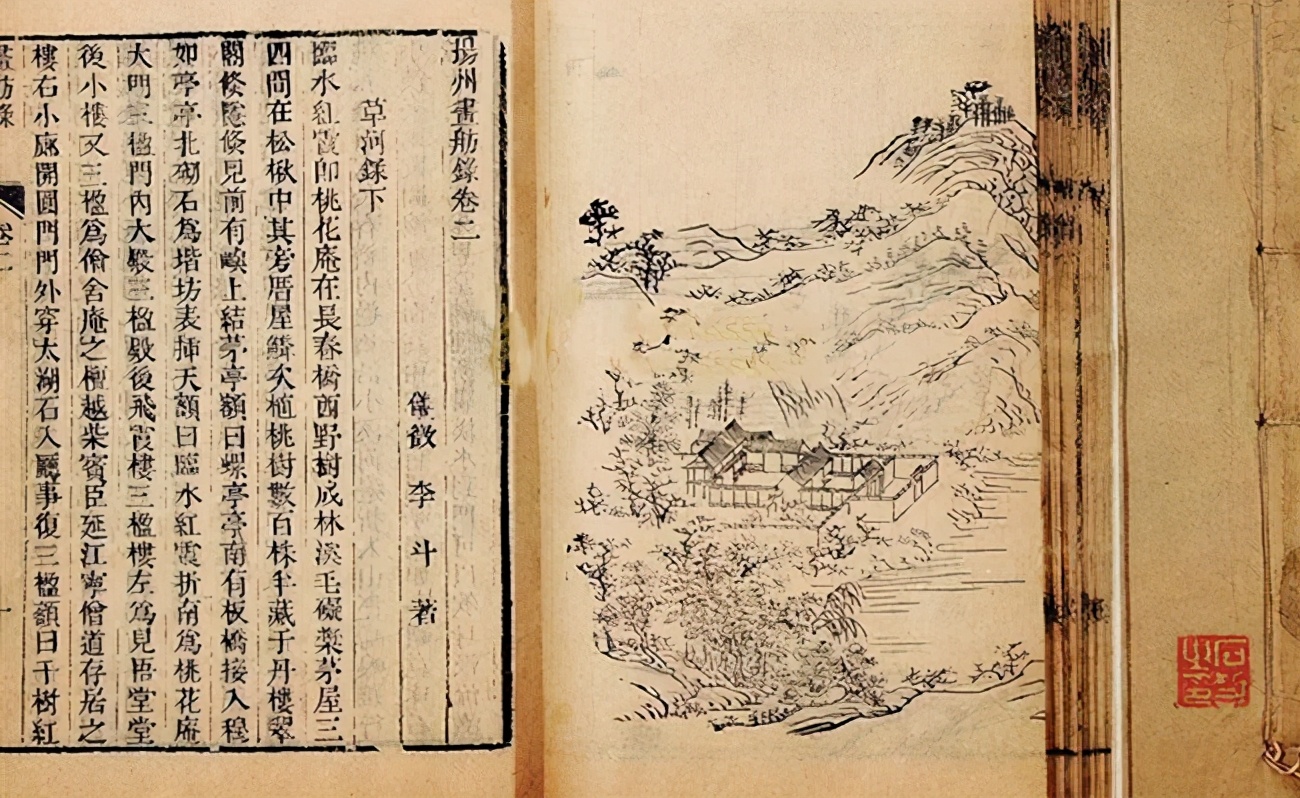 揚州畫舫錄卷二
儀徵 李斗 著
草河錄下
臨水紅霞即桃花庵在長春橋西野樹成林溪毛礙槳茅屋三
四間在松楸中其旁厝屋鱗次植桃樹數百株半藏于丹樓翠
閣倏隱倏見前有嶼上結茅亭額曰螺亭亭南有板橋接入穆
如亭亭北砌石爲堦坊表插天額曰臨水紅霞折南爲桃花庵
大門三楹門內大殿三楹殿後飛霞樓三楹樓左爲見悟堂堂
後小樓又三楹爲僧舍庵之檀越柴賓臣延江寧僧道存居之
樓右小廊開圓門門外穿太湖石入廳事復三楹額曰千樹紅
畫舫錄 卷二 一